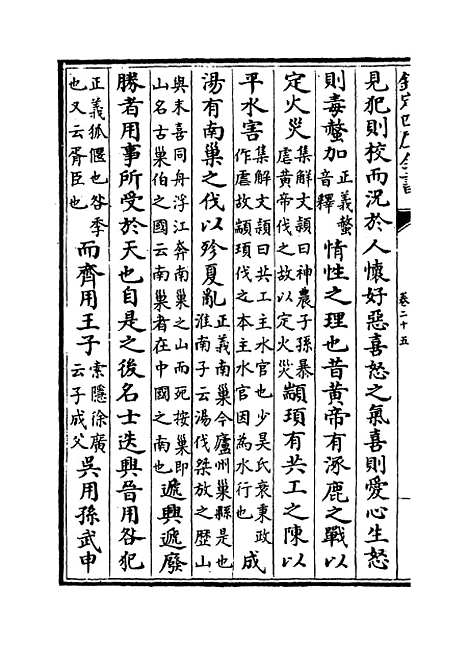 欽定四庫全書 卷二十五
見犯則校而況於人懷好惡喜怒之氣喜則愛心生怒
則毒螫加正義螫音釋情性之理也昔黃帝有涿鹿之戰以
定火災集解文穎曰神農子孫暴虐黃帝伐之故以定火災顓頊有共工之陳以
平水害集解文穎曰共工主水官也少昊氏衰秉政作虐故顓頊伐之本主水官因為水行也成
湯有南巢之伐以殄夏亂正義南巢今廬州巢縣是也淮南子云湯伐桀放之歷山
與末喜同舟浮江奔南巢之山而死按巢即山名古巢伯之國云南巢者在中國之南也遞興遞廢
勝者用事所受於天也自是之後名士迭興晉用咎犯
正義狐偃也咎季也又云胥臣也而齊用王子索隱徐廣云子成父吳用孫武申